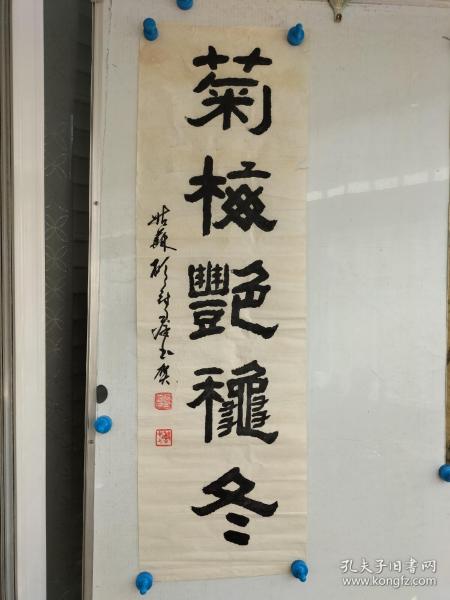 菊梅艷龝冬
姑蘇
孔夫子旧书网
www.kongfz.com